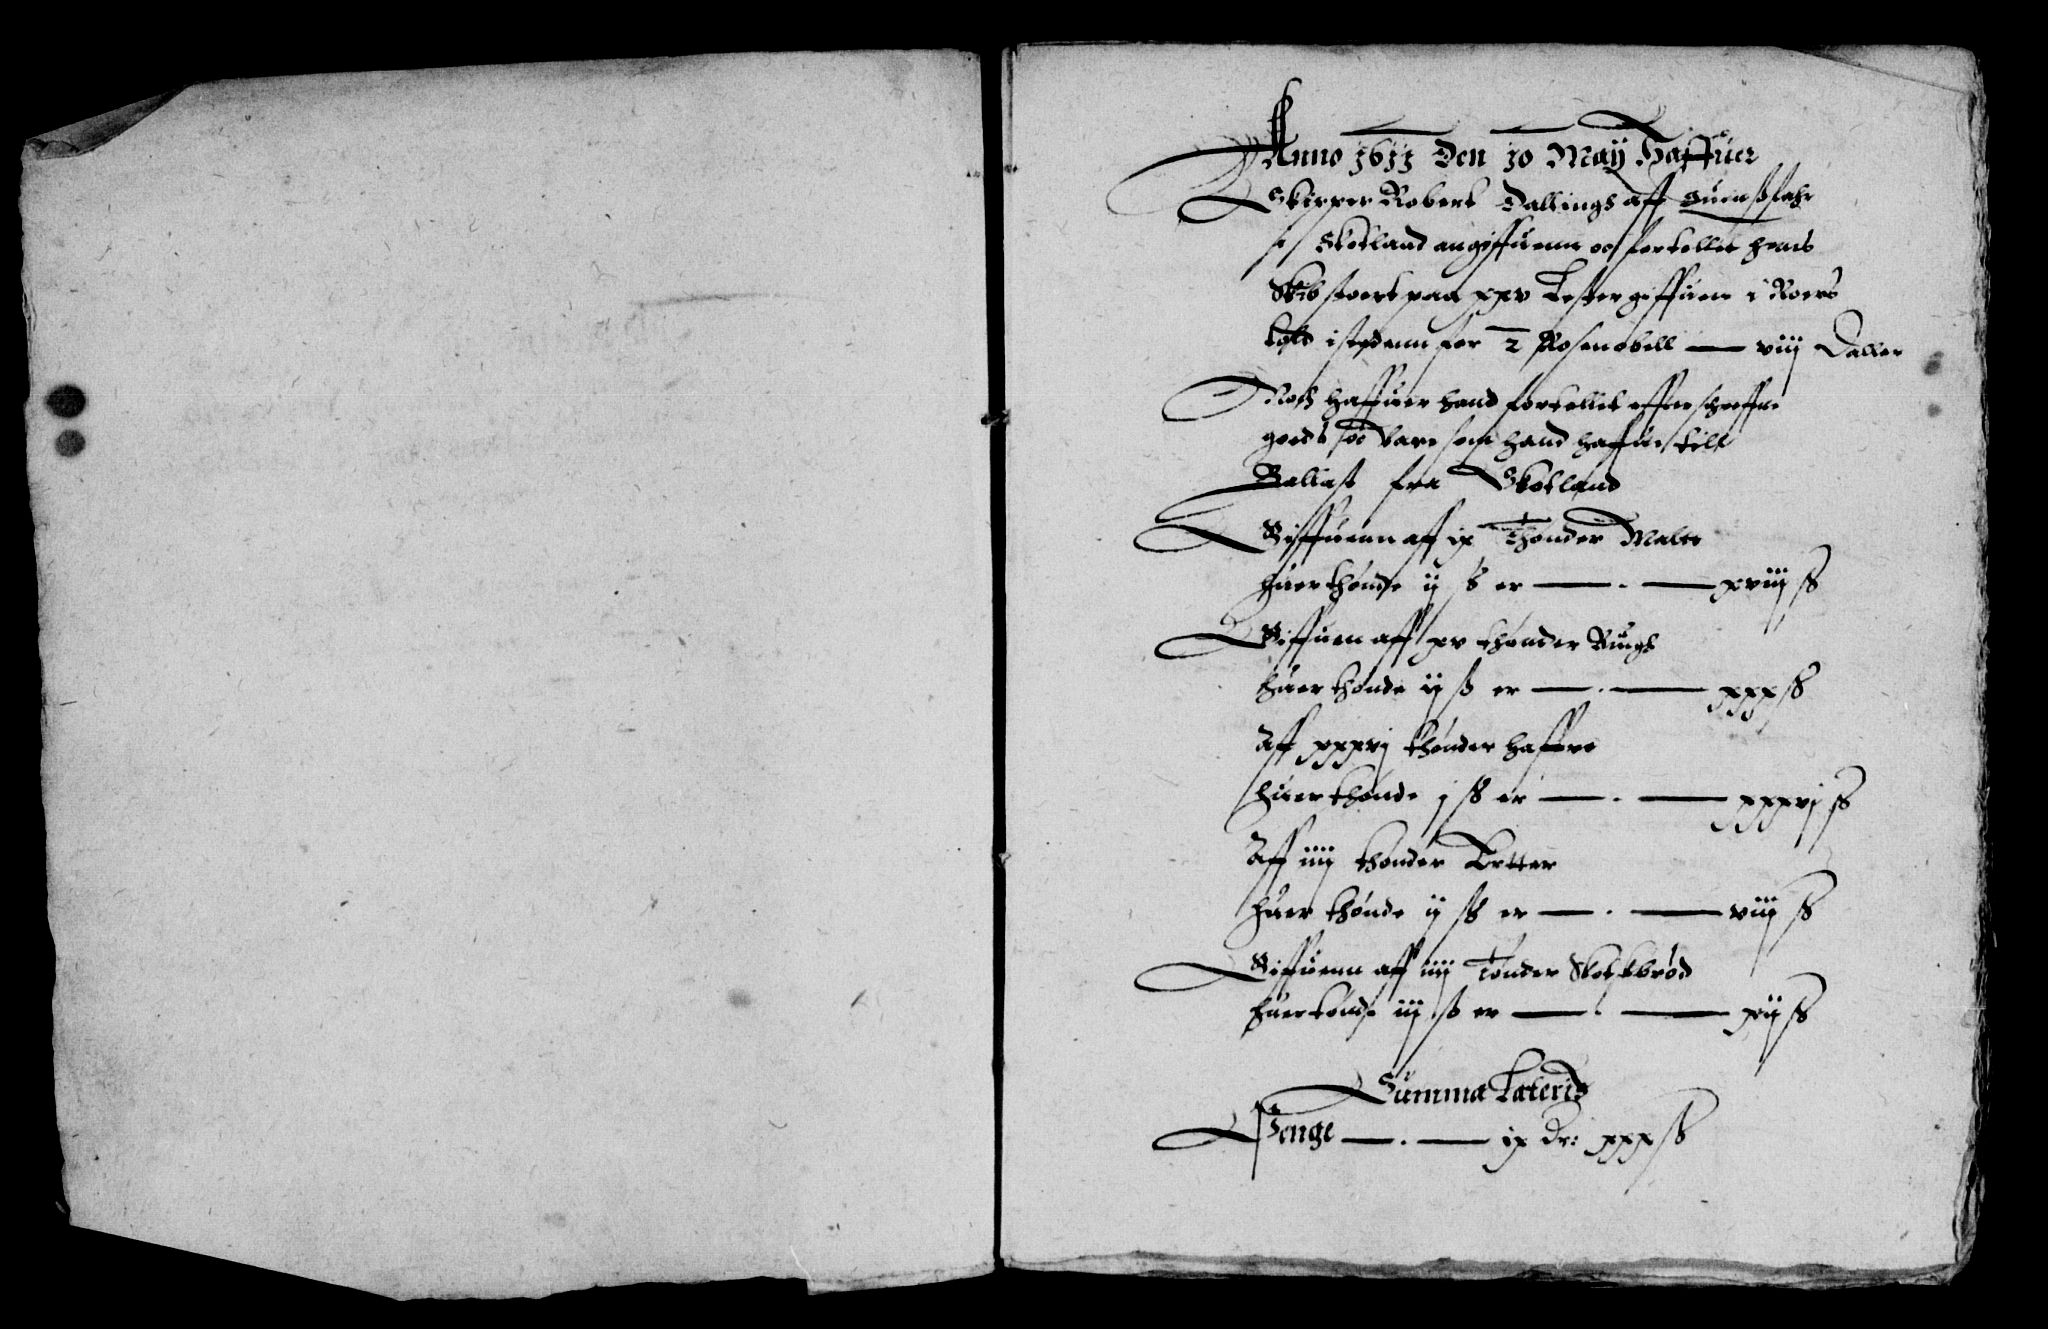 Anno 1611 den 10 Maij Haffuer
Skipper Robert Dallings aff
i Skotland angiffuenn oc fortollet hans
Skib stoert paa xxv Lester giffuenn i Roers
told istedenn for 2 Rosenobell —— viij Daller
Noch Haffuer hand fortollit effterschreffne
goeds som hand haffue till
Ballast fra Skotland
Giffuenn aff ix Thønder Malt
huer thønde ij ß er —— . —— xviij ß
Giffuen aff xv thønder Rugh
huer thønde ij ß er —— . —— xxx ß
Aff xxxvj thønder haffre
huer thønde j ß er —— . —— xxxvj ß
Aff iiij thønder Ertter
huer thønde ij ß er —— . —— viij ß
Giffuenn aff iiij Tønder Skotskbrød
huer tønde iij ß er —— . —— xij ß
Summa Lateris
Penge —— . —— ix Dr: xxx ß